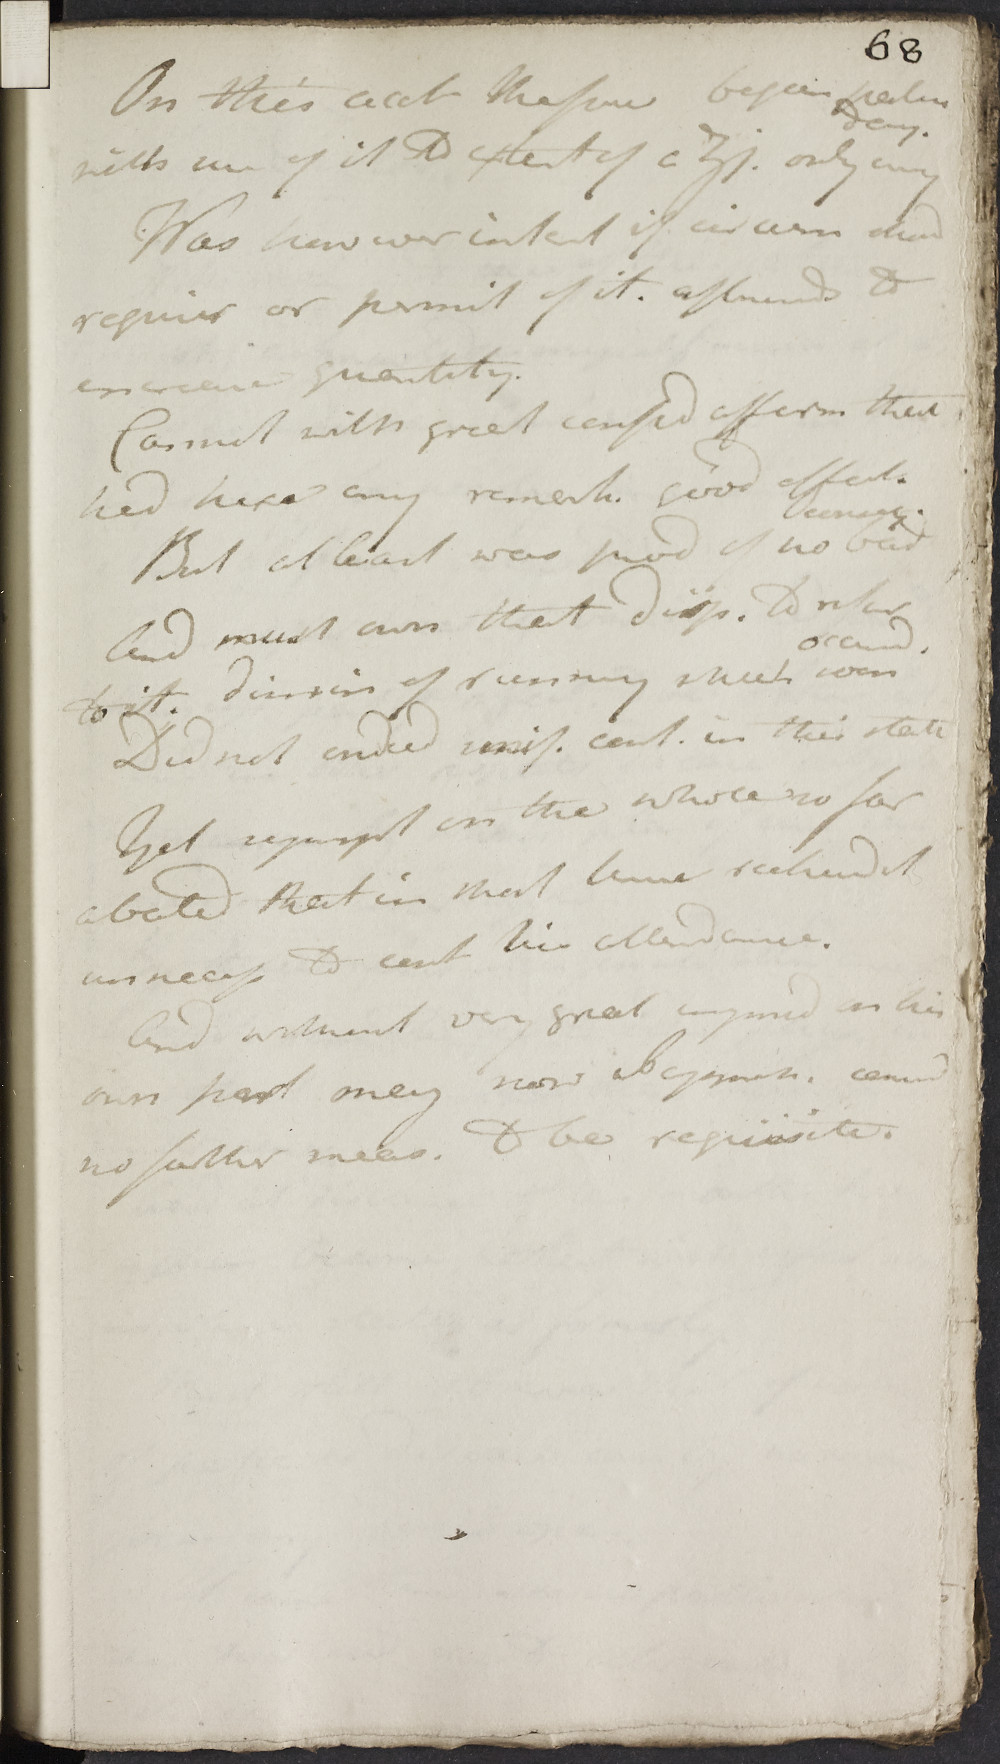 68
On this acct therfore began patien
day.
with use of it to extent of a ʒj. only
Was however intent if circum shoud
require or permit of it. afterwards to
increase quantity.
Cannot with great confid affirm that
had here any remark. good effect.
But at least was prod of no bad
conseq.
And must own that disp. to
to it. dimin of running soon
occurred.
Did not indeed unif. cont. in this state
Yet sympt on the whole so far
abated that in short time reckond it
unnecess to cont his attendance.
And without very great imprud on his
own part may now
no farther meas. to be requisite.